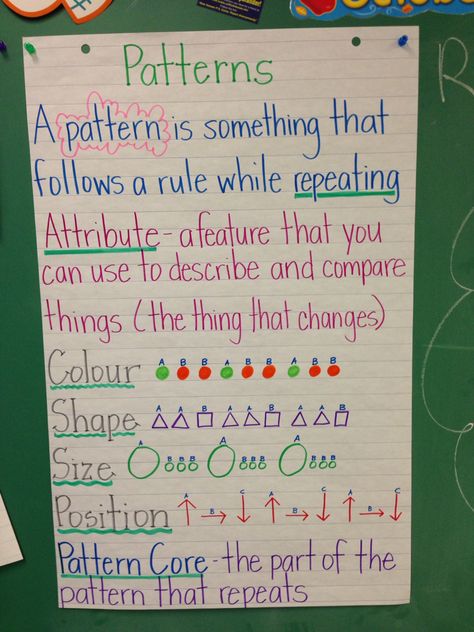 Patterns
A pattern is something that
follows a rule while repeating
Attribute - a feature that you
can use to describe and compare
things (the thing that changes)
Colour A B B A B B A B B
Shape A A B A A B A A B
Size A B B B A B B B A B B B
Position A B C A B C A B C
Pattern Core - the part of the
pattern that repeats